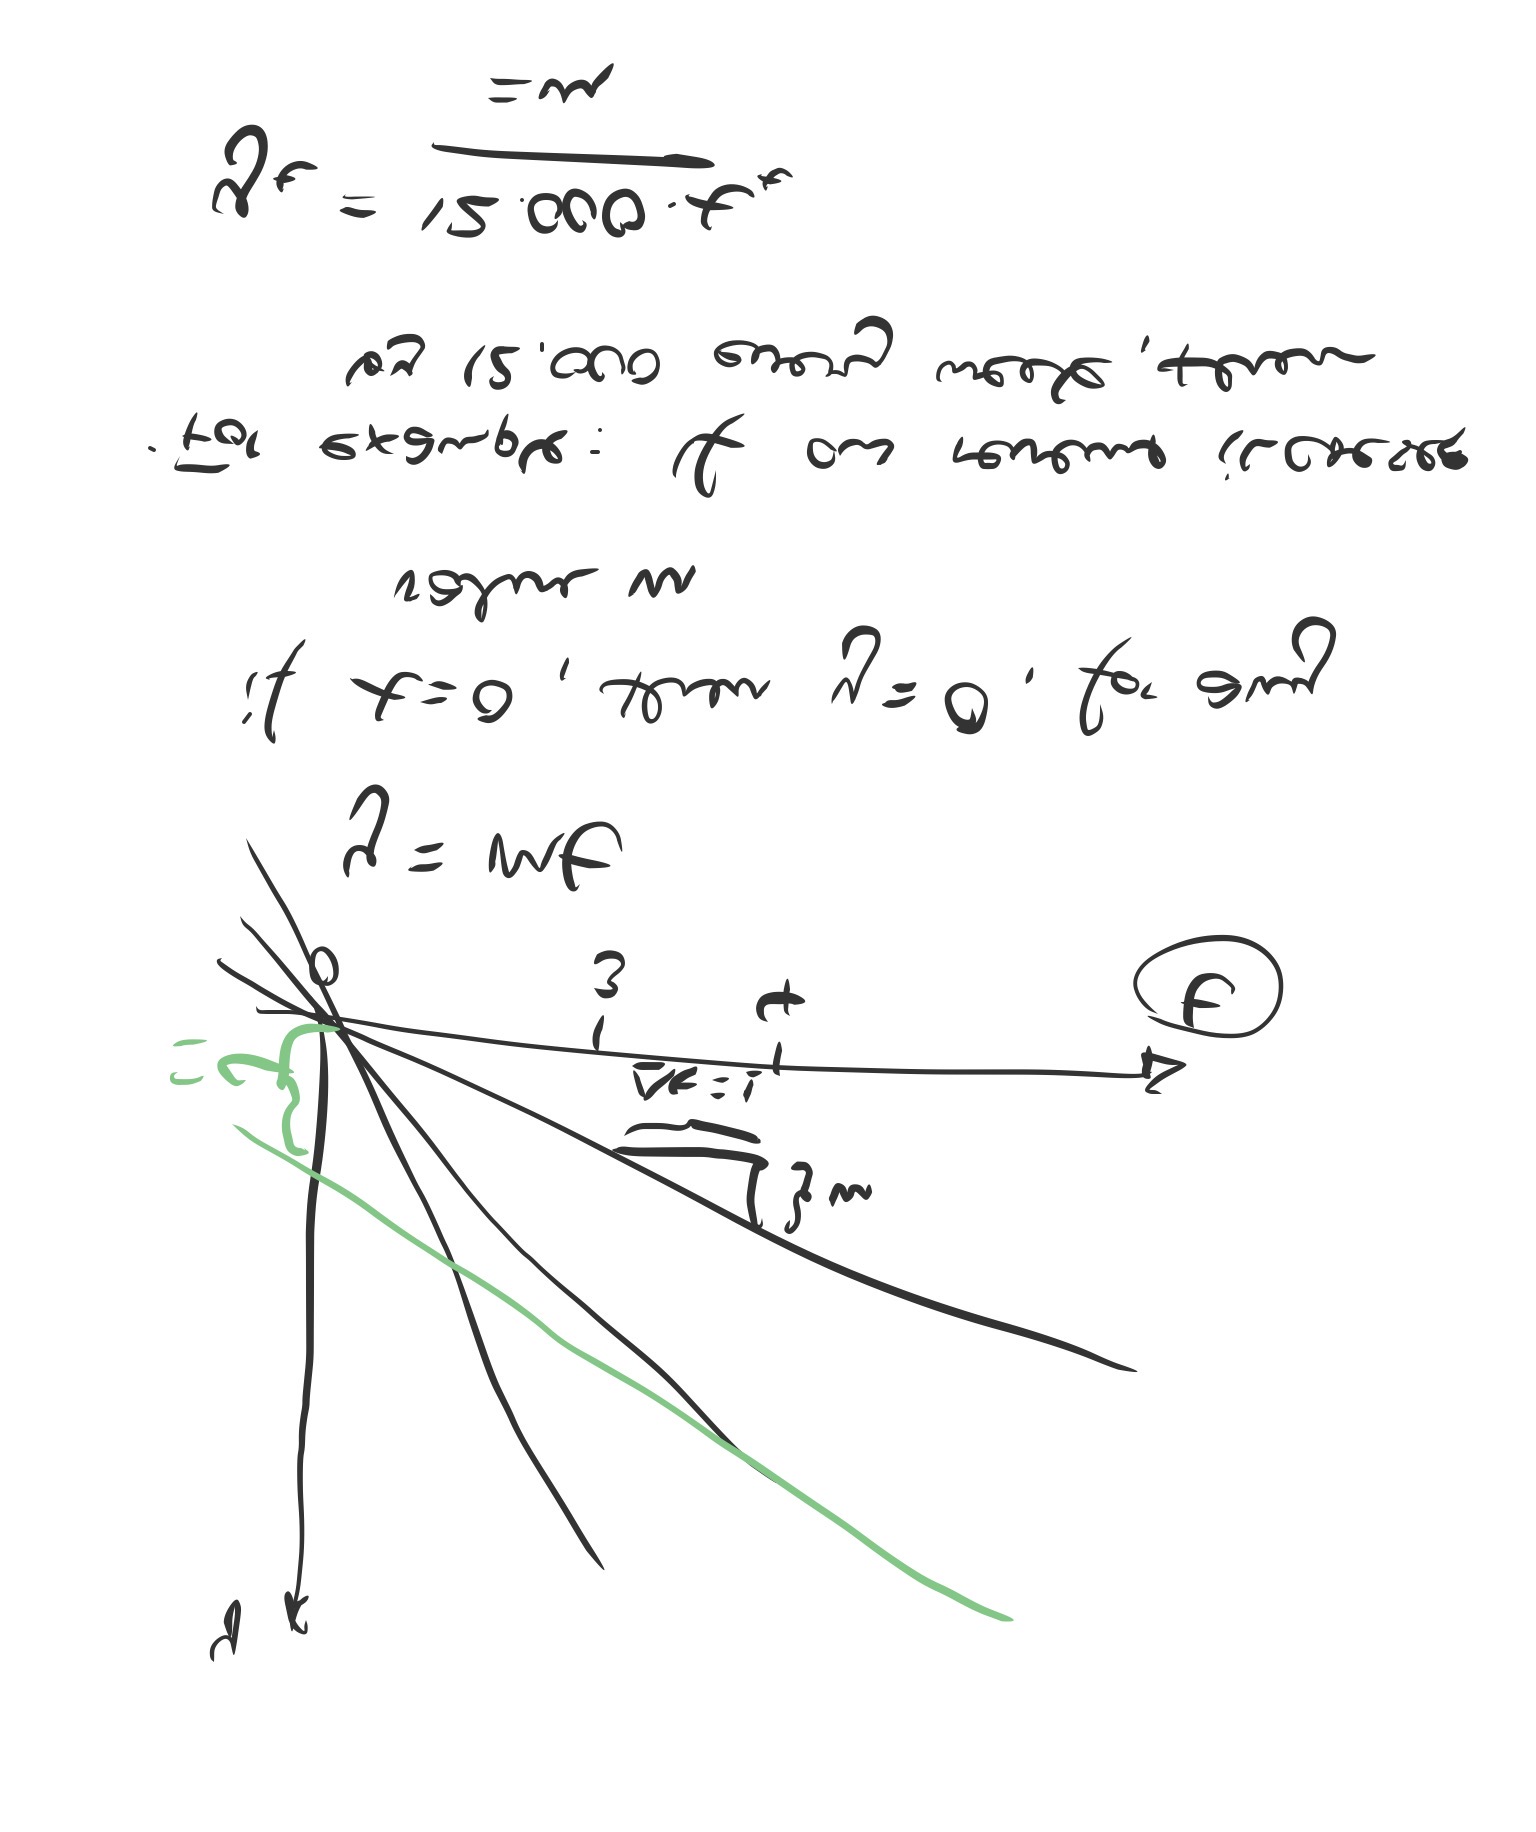 y
} m
Δt = 1
= c {
3
4
t
0
y = mt
if t=0, then y=0, for any
value m
For example: If our revenue increases
by 12.000 every week, then
y_t = 12.000 · t_t
= m